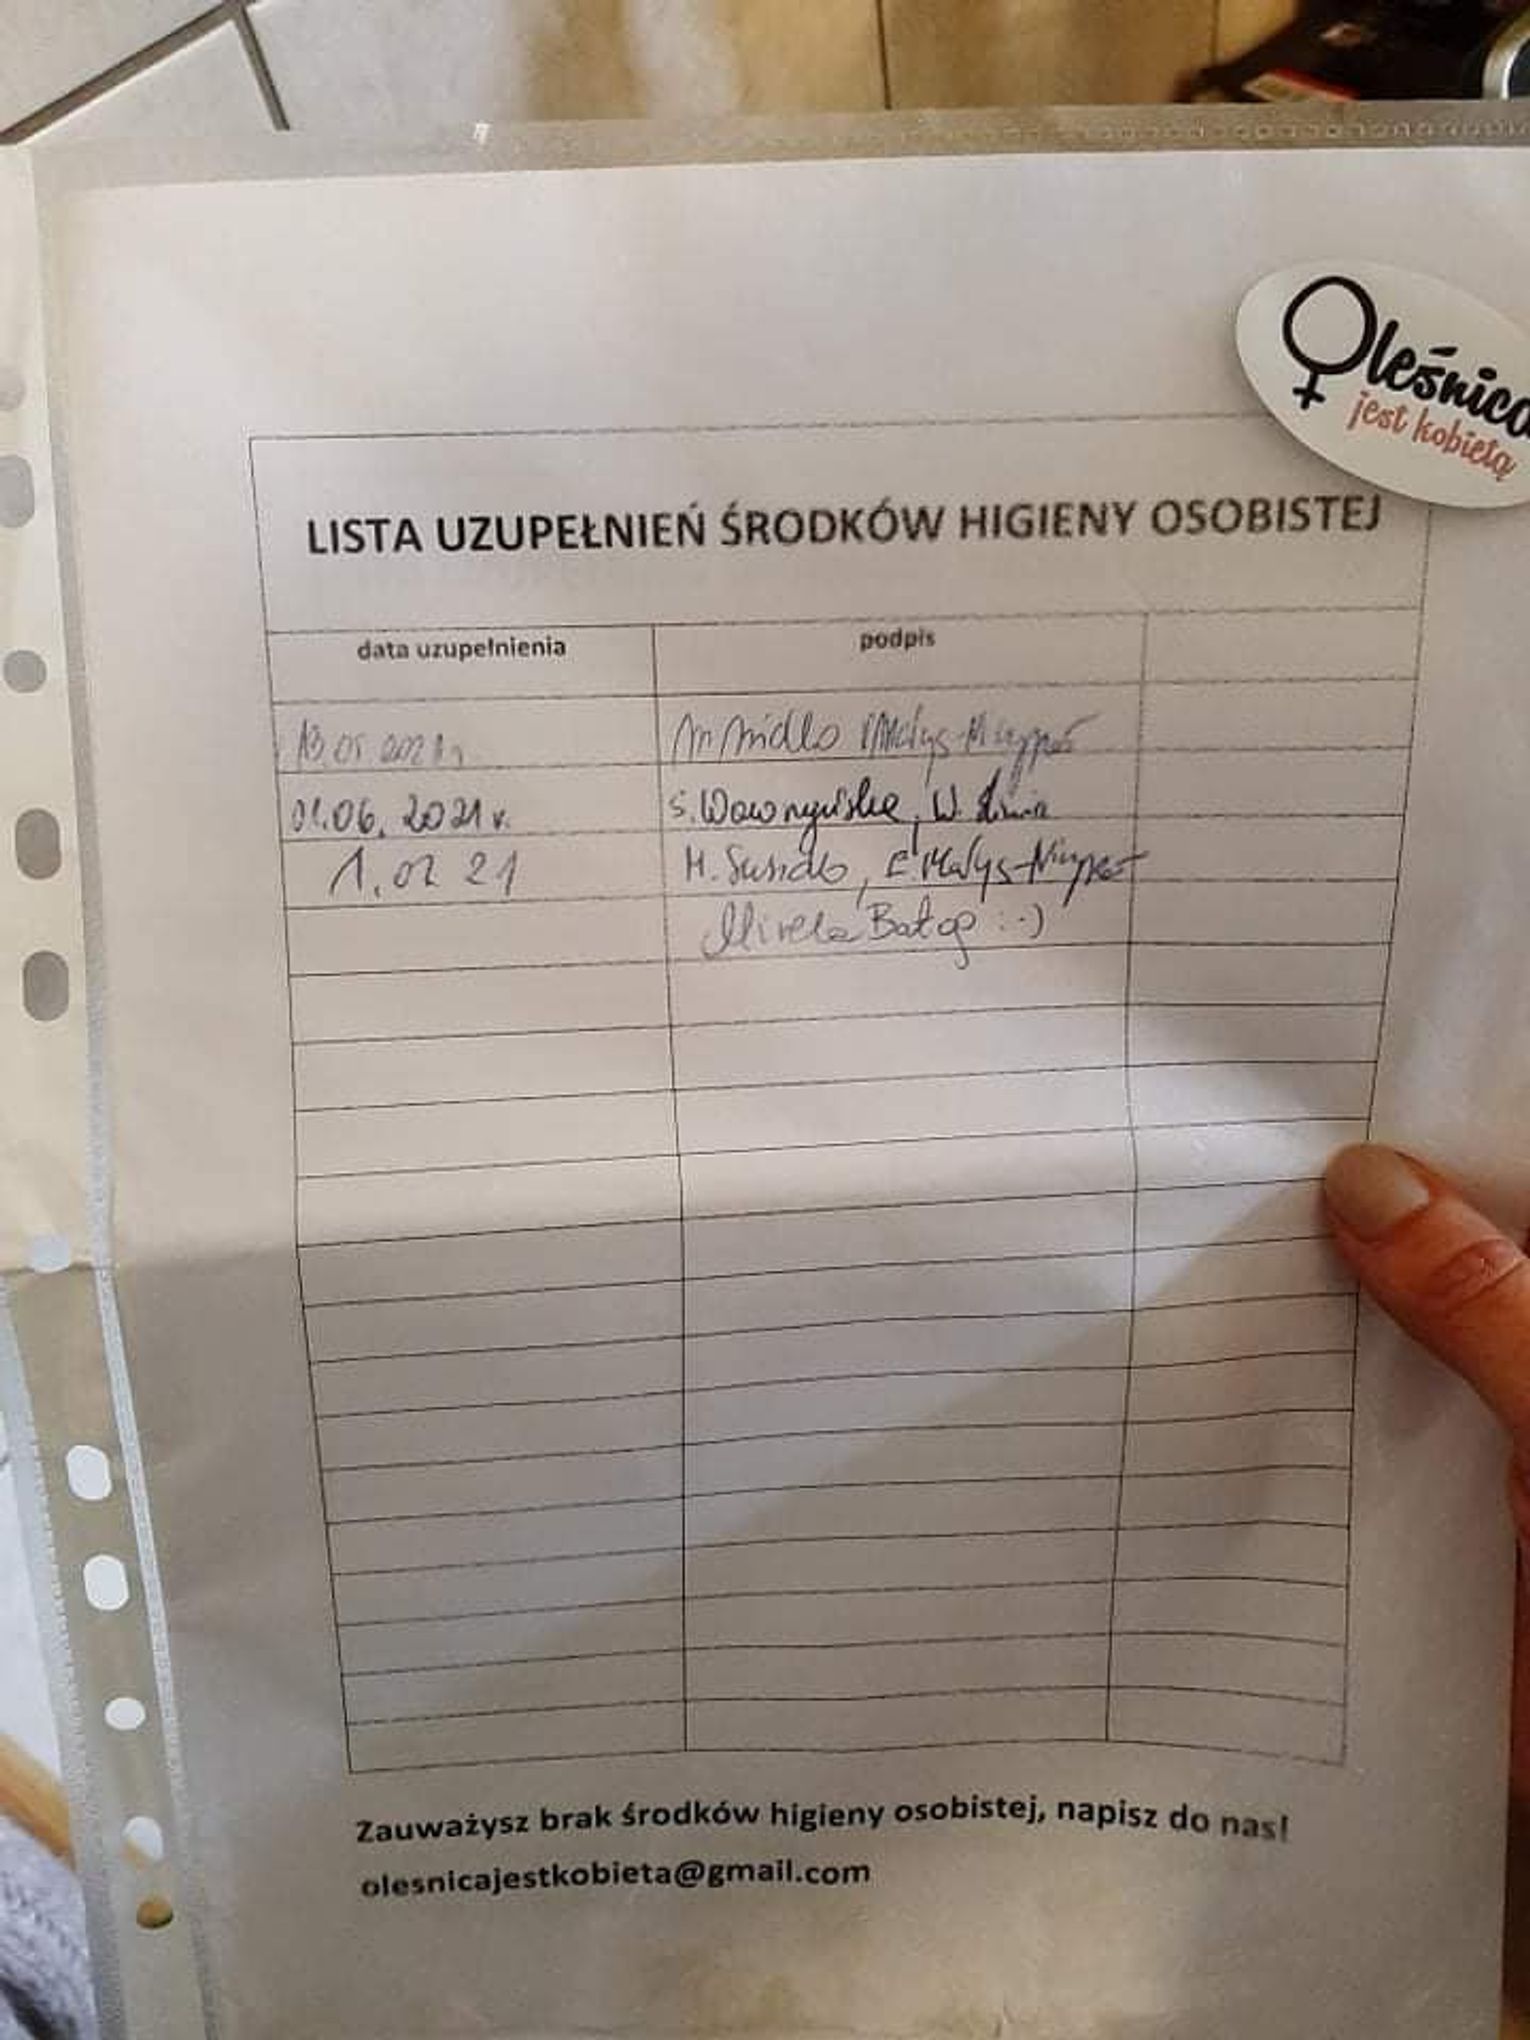 Oleśnica
jest kobietą
LISTA UZUPEŁNIEŃ ŚRODKÓW HIGIENY OSOBISTEJ
data uzupełnienia podpis
13.05 2021r
01.06. 2021 r. S. Wawrzyńska, W.
1.07 21 M. Susidło, E. Małys-Niczypor
Mirela Batog :-)
Zauważysz brak środków higieny osobistej, napisz do nas!
olesnicajestkobieta@gmail.com